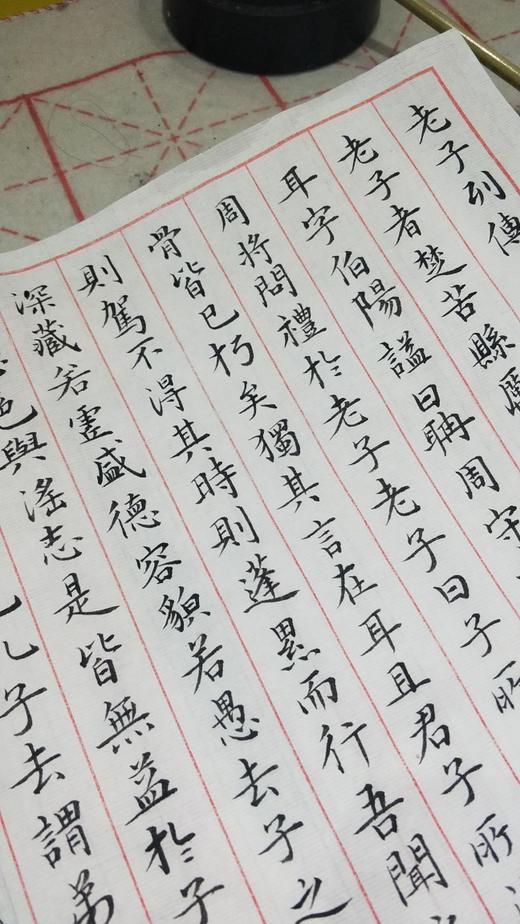 老子列傳
老子者楚苦縣厲
耳字伯陽謚曰聃周守
周將問禮於老子老子曰子所
骨皆已朽矣獨其言在耳且君子所
則駕不得其時則蓬累而行吾聞
深藏若虛盛德容貌若愚去子之
色與淫志是皆無益於子
子去謂弟